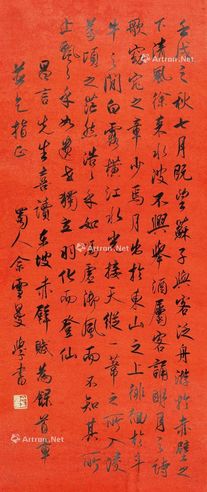 壬戌之秋七月既望蘇子與客泛舟游於赤壁之
下清風徐來水波不興舉酒屬客誦明月之詩
歌窈窕之章少焉月出於東山之上徘徊於斗
牛之間白露橫江水光接天縱一葦之所如凌
萬頃之茫然浩浩乎如馮虛御風而不知其所
止飄飄乎如遺世獨立羽化而登仙
昌言先生喜讀東坡赤壁賦為錄首章
並乞指正
蜀人余雪曼學書